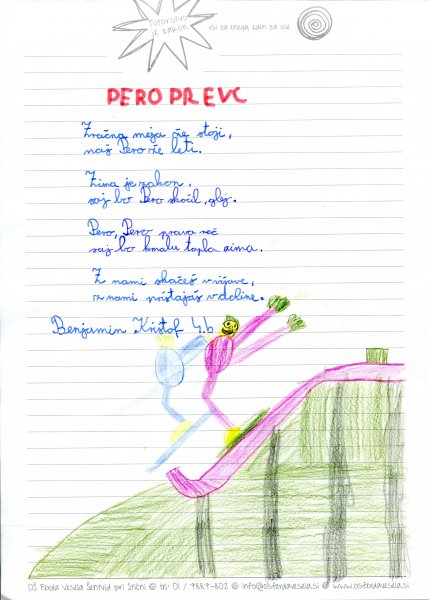 Tutorstvo
je zakon
vsi za enega, eden za vse
PERO PREVC
Zračna meja če stoji,
naj Pero že leti.
Zima je zakon,
saj bo Pero skočil, glej.
Pero, Pero prava reč
saj bo kmalu topla zima.
Z nami skačeš v višave,
z nami pristajaš v doline.
Benjamin Krištof 4.b
OŠ Ferda Vesela Šentvid pri Stični © tel: 01 / 7887-802 © info@osferdavesela.si © www.osferdavesela.si